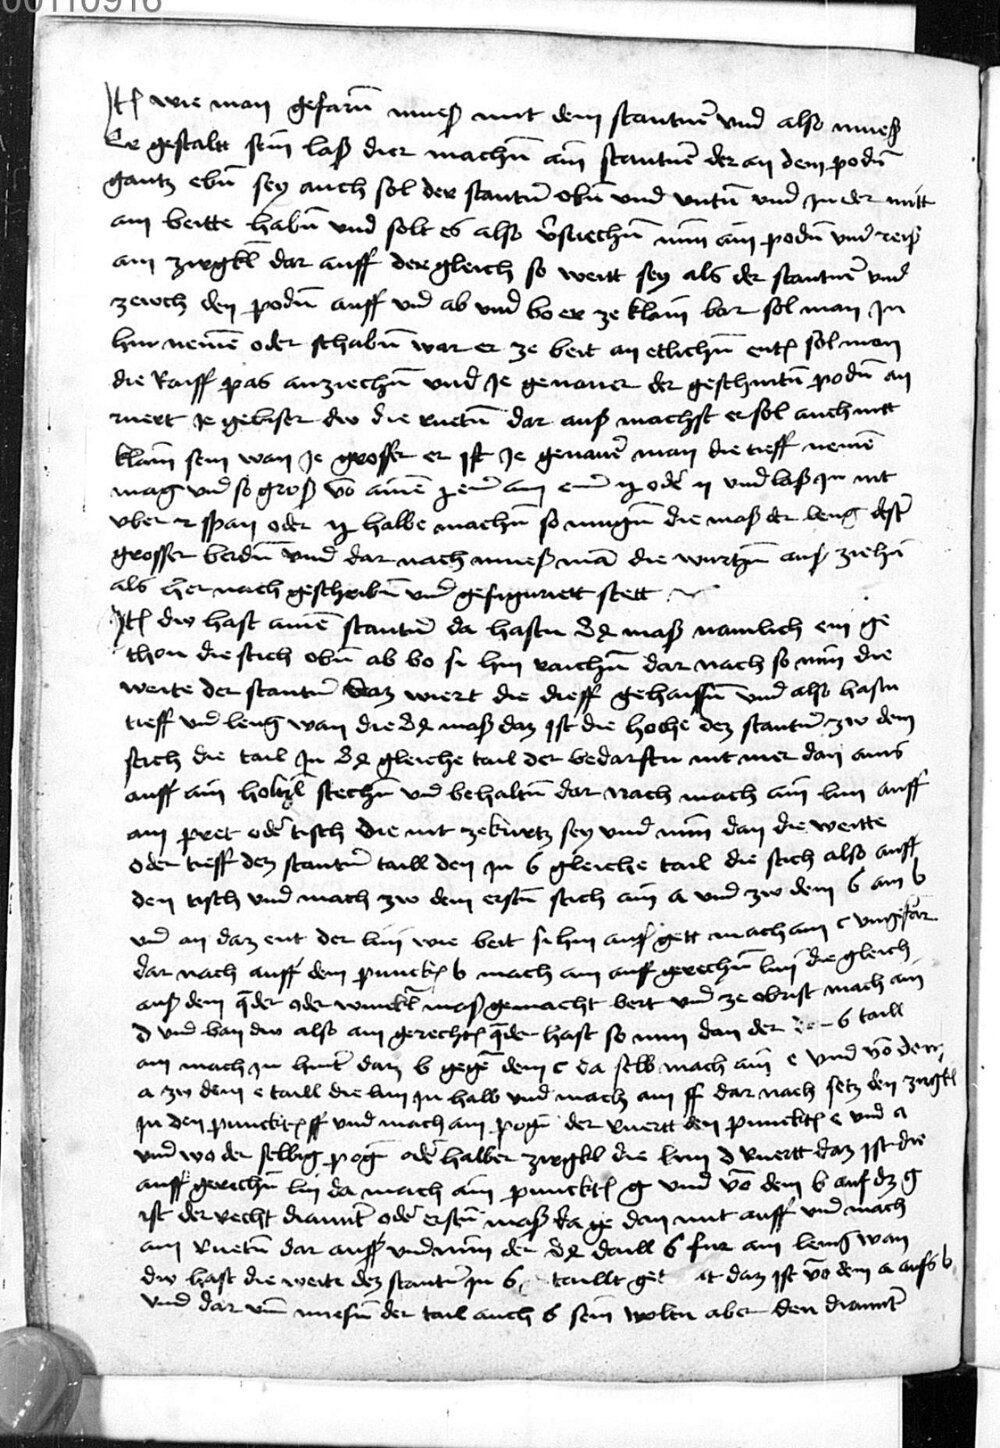 00110916
Jt(em) wie man gefarn̄ mueß mit dem stantner̄ vnd also mueß
Er gestaltt sein laß dier machn̄ ain stantner̄ der an dem podn̄
gantz ebn̄ sey auch sol der stantner̄ obn̄ vnd vntn̄ vnd Jn der mitt
ain beitte habn̄ vnd solt es also v̄suechn̄ nim ain podn̄ vnd reiß
ain zirgkl dar auff der gleich so weitt sey als der stantner̄ vnd
zewch den podn̄ auff vnd ab vnd bo er ze klain bar sol man Jn
hin nemē oder schabn̄ war er ze beit an etlichn̄ entt(en) sol man
die Raiff pas anziechn̄ vnd Je genauer der geschnitn̄ podn̄ an
ruert Je gebiser dw die ruetn̄ dar auß machst er sol auch nitt
klain sein wan Je grosser er ist Je genauer̄ man die tieff nemē
mag vnd so groß vō ainē emer̄ ain emer̄ oder̄ ij vnd laß Jn nit
vber 2 span oder halbe machn̄ so mugn̄ die maß der leng dester̄
grosser berdn̄ vnd dar nach mueß mā die wurtzn̄ auß ziehn̄
als her nach geschribn̄ vnd gefiguriett stett
Jt(em) dw hast ainē stantner̄ da hastu maß namlich ein ge
thon die stich obn̄ ab bo si hin raichn̄ dar nach so nim die
weite der stantner̄ daz wiert die dieff gehaissn̄ vnd also hastu
tieff vnd leng wan die maß daz ist die hoche dez stantner̄ zw dem
stich die tail Jn gleiche tail der bedarfstu nit mer dan ains
auff ain holtzl stechn̄ vnd behaltn̄ dar nach mach ain lini auff
ain pret oder̄ tisch die nit ze kurtz sey vnd nim dan die weitte
oder tieff dez stantner̄ taill den Jn 6 gleiche tail die stich also auff
den tisch vnd mach zw dem erstn̄ stich ain a vnd zw dem 6 ain b
vnd an daz ent der lini wie beit si hin auß gett mach ain c vngefar
dar nach auff dem punckt b mach ain auf gerechn̄ lini die gleich
auß dem q̄der oder winckl maß gemacht bert vnd ze obrist mach ain
d vnd ban dw also ain gerecht(en) q̄der hast so nim dan der 6 taill
ain mach Jn hintr̄ daz b gegn̄ dem c da selb mach ain e vnd vō dem
a zw dem e taill die lini Jn halb vnd mach ain ff dar nach setz den zirgkl
Jn den punckt(en) ff vnd mach ain pogn̄ der ruertt den punckt(en) e vnd a
vnd wo der selbig pogn̄ oder̄ halber zirgkl die lini d ruertt daz ist die
auff gerichn̄ lini da mach ain punckt g vnd vō dem b auf dz g
ist der recht diamitr̄ oder̄ erstn̄ maß da ge dan mit auff vnd mach
ain Ruetn̄ dar auß vnd nim der daill 6 fur ain leng wan
dw hast die weite dez stantner̄ Jn 6 taillt daz ist vō dem a aufs b
vnd dar vm̄ muesn̄ der tail auch 6 sein woltu aber den diamitr̄